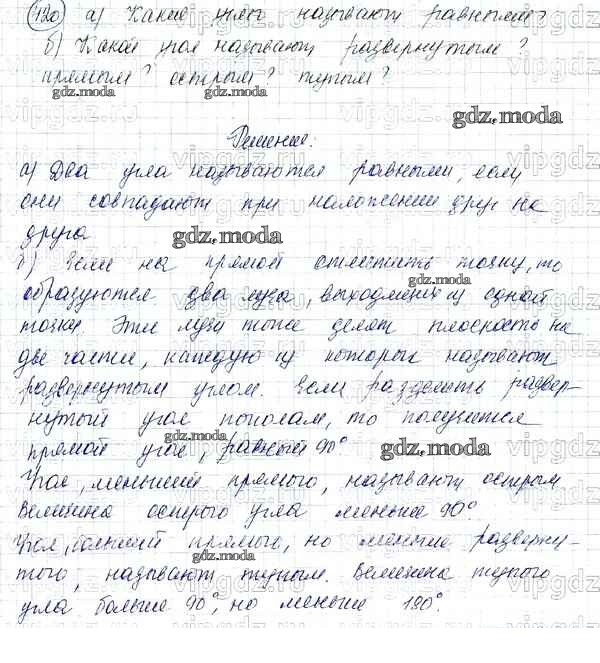 120 а) Какие углы называют равными?
б) Какой угол называют развернутым?
прямым? острым? тупым?
gdz.moda gdz.moda
gdz.moda
Решение:
а) Два угла называются равными, если
они совпадают при наложении друг на
друга
gdz.moda
б) Если на прямой отметить точку, то
gdz.moda
образуются два луча, выходящие из одной
точки. Эти лучи тоже делят плоскость на
две части, каждую из которых называют
развернутым углом. Если разделить развер-
нутый угол пополам, то получится
прямой угол, равный 90°
gdz.moda gdz.moda
Угол, меньший прямого, называют острым
Величина острого угла меньше 90°.
Угол, больший прямого, но меньше разверну-
gdz.moda
того, называют тупым. Величина тупого
угла больше 90°, но меньше 180°.
gdz.moda